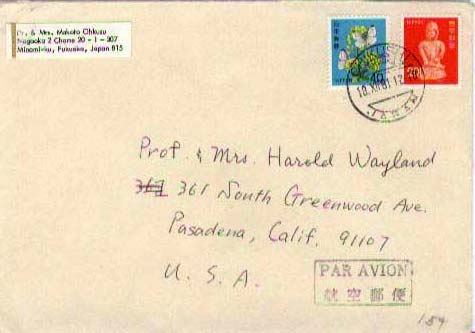 Dr. & Mrs. Makoto Ohkusu
Nagaoka 2 Chome 20 - 1 - 307
Minami-ku, Fukuoka, Japan 815
NIPPON
NIPPON
20
18.XII.81.12
JAPAN
Prof. & Mrs. Harold Wayland
361 361 South Greenwood Ave.
Pasadena, Calif. 91107
U. S. A.
PAR AVION
航空郵便